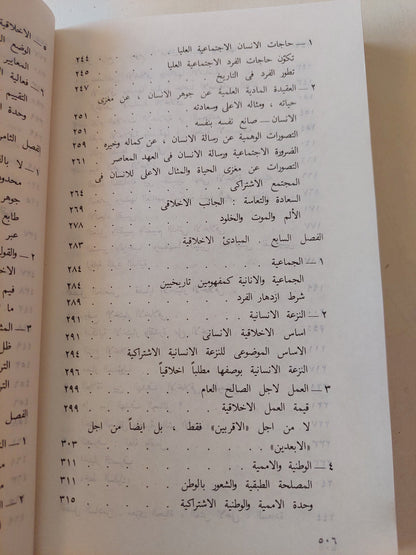 ١ — حاجات الانسان الاجتماعية العليا . . . . ٢٤٤
تكوّن حاجات الفرد الاجتماعية العليا . . . . ٢٤٥
تطور الفرد في التاريخ . . . . ٢٤٧
٢ — العقيدة المادية العلمية عن جوهر الانسان ، عن مغزى
حياته ، ومثاله الاعلى وسعادته . . . . ٢٥١
الانسان — صانع نفسه بنفسه . . . . ٢٥١
التصورات الوهمية عن رسالة الانسان ، عن كماله وخيره . ٢٥٩
الضرورة الاجتماعية ورسالة الانسان في العهد المعاصر . ٢٦١
التصورات عن مغزى الحياة والمثال الاعلى للانسان في
المجتمع الاشتراكي . . . . ٢٦٤
السعادة والتعاسة : الجانب الاخلاقي . . . . ٢٦٩
الألم والموت والخلود . . . . ٢٧٨
الفصل السابع . المبادئ الاخلاقية . . . . ٢٨٣
١ — الجماعية . . . . ٢٨٤
الجماعية والانانية كمفهومين تاريخيين . . . . ٢٨٤
شرط ازدهار الفرد . . . . ٢٨٩
٢ — النزعة الانسانية . . . . ٢٩١
اساس الاخلاقية الانساني . . . . ٢٩١
الاساس الموضوعي للنزعة الانسانية الاشتراكية . . ٢٩٤
النزعة الانسانية بوصفها مطلباً اخلاقياً . . . . ٢٩٦
٣ — العمل لاجل الصالح العام . . . . ٢٩٩
قيمة العمل الاخلاقية . . . . ٢٩٩
لا من اجل «الاقربين» فقط ، بل ايضاً من اجل
«الابعدين» . . . . ٣٠٣
٤ — الوطنية والاممية . . . . ٣١١
المصلحة الطبقية والشعور بالوطن . . . . ٣١١
وحدة الاممية والوطنية الاشتراكية . . . . ٣١٥
٥٠٦
٥ — الاخلاقية
الوضع
المعايير
٦ — فعالية
التقييم
وحدة
الفصل الثامن
١ — لا
محدود
جوهر
طابع
عبر
٢ — والقول
الاخ
قيم
ما
٣ — المث
ظل
التر
التر
الفصل
١ — الت
٢ —